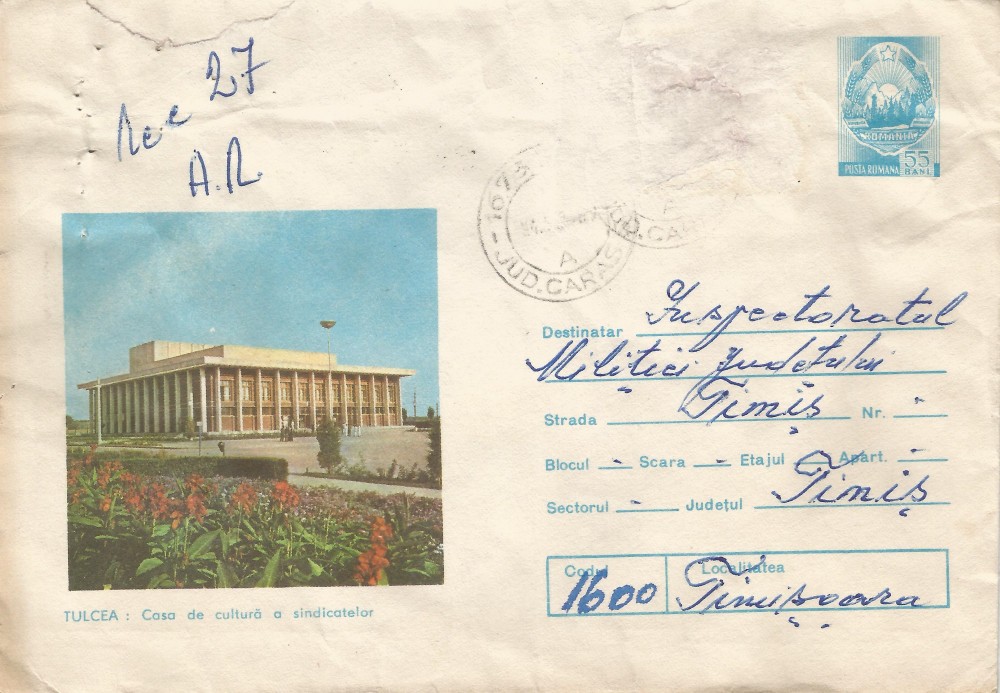 Rec 27
A.R.
ROMANIA
POSTA ROMANA 55 BANI
1673
A
JUD. CARAS
A
JUD. CARAS
Destinatar Inspectoratul
Miliției Județului
Strada Timiș Nr. -
Blocul - Scara - Etajul - Apărt. -
Sectorul - Județul Timiș
Codul Localitatea
1600 Timișoara
TULCEA : Casa de cultură a sindicatelor